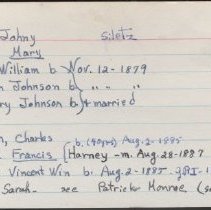 Johny Siletz
Mary
William b. Nov. 12-1879
n Johnson b " " "
ry Johnson b & married
n, Charles b. (40yrs) Aug-2-1885
Francis Harney -m. Aug. 28-1887
Vincent Win b. Aug-2-1885-
Sarah- see Patrick Monroe